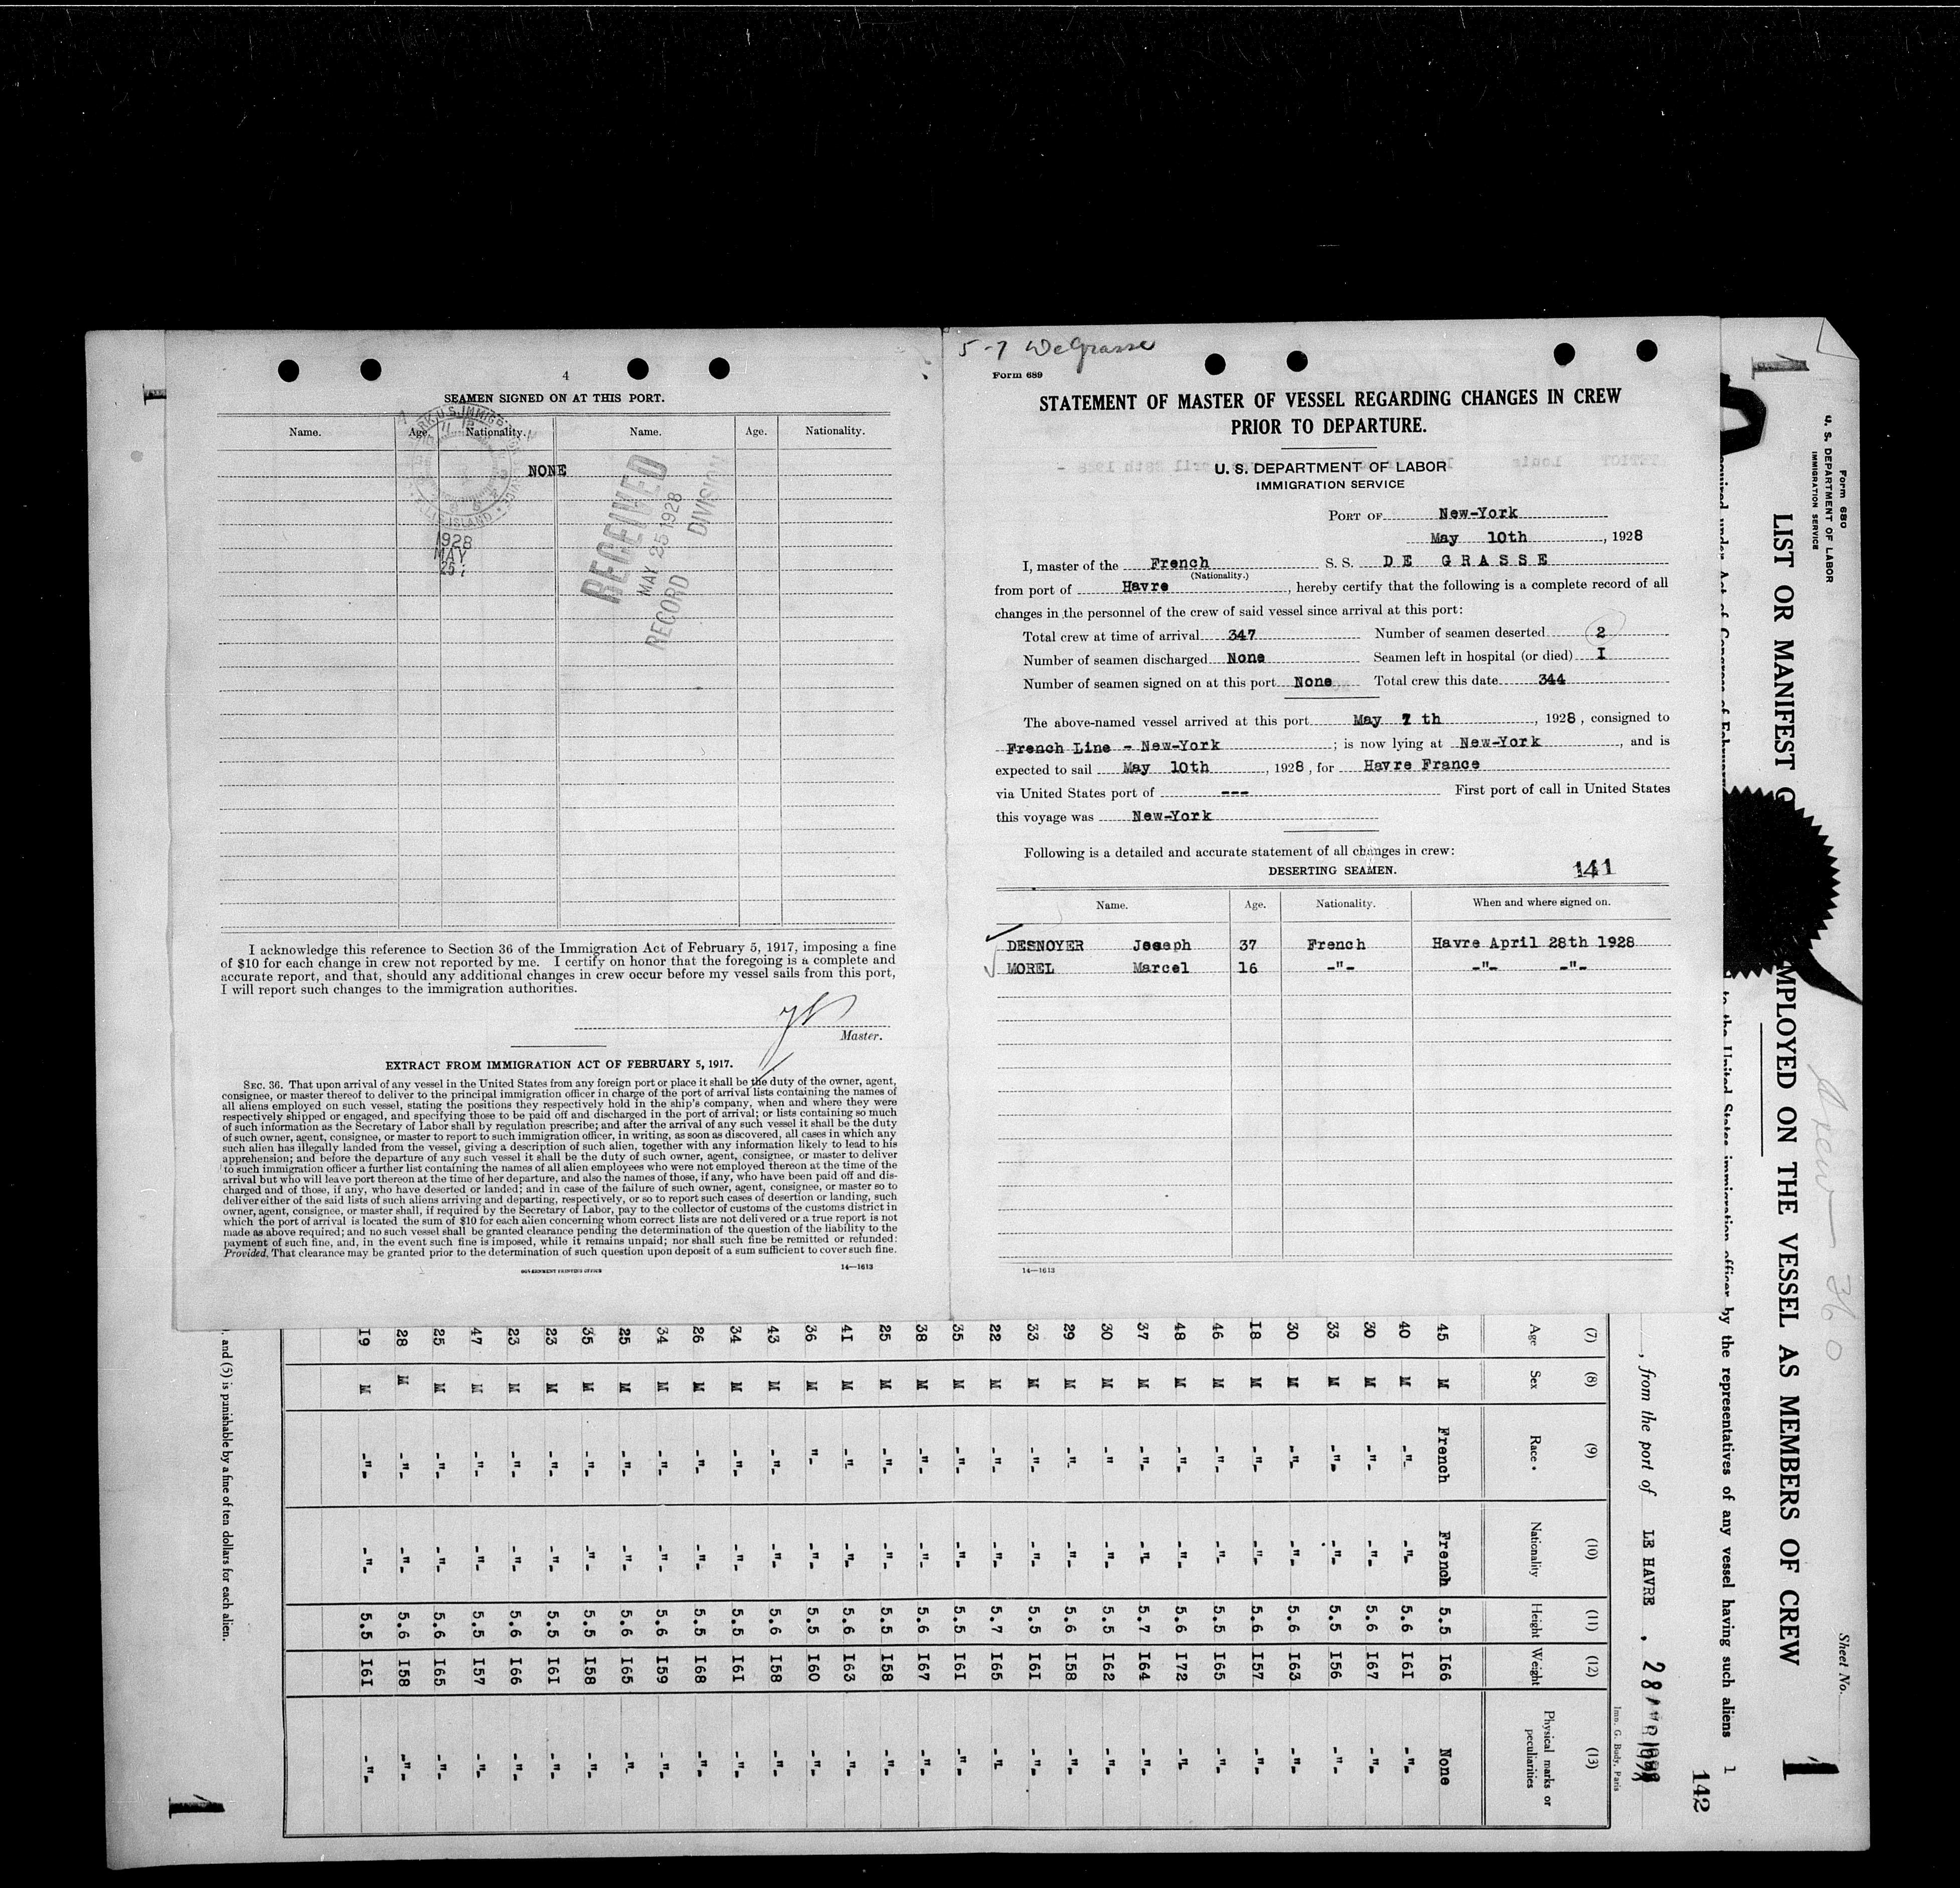 4
SEAMEN SIGNED ON AT THIS PORT.
Name. Age. Nationality. Name. Age. Nationality.
NONE
ELLIS ISLAND
1928
MAY
25
RECEIVED
MAY 25 1928
RECORD DIVISION
I acknowledge this reference to Section 36 of the Immigration Act of February 5, 1917, imposing a fine
of $10 for each change in crew not reported by me. I certify on honor that the foregoing is a complete and
accurate report, and that, should any additional changes in crew occur before my vessel sails from this port,
I will report such changes to the immigration authorities.
Master.
EXTRACT FROM IMMIGRATION ACT OF FEBRUARY 5, 1917.
SEC. 36. That upon arrival of any vessel in the United States from any foreign port or place it shall be the duty of the owner, agent,
consignee, or master thereof to deliver to the principal immigration officer in charge of the port of arrival lists containing the names of
all aliens employed on such vessel, stating the positions they respectively hold in the ship's company, when and where they were
respectively shipped or engaged, and specifying those to be paid off and discharged in the port of arrival; or lists containing so much
of such information as the Secretary of Labor shall by regulation prescribe; and after the arrival of any such vessel it shall be the duty
of such owner, agent, consignee, or master to report to such immigration officer, in writing, as soon as discovered, all cases in which any
such alien has illegally landed from the vessel, giving a description of such alien, together with any information likely to lead to his
apprehension; and before the departure of any such vessel it shall be the duty of such owner, agent, consignee, or master to deliver
to such immigration officer a further list containing the names of all alien employees who were not employed thereon at the time of the
arrival but who will leave port thereon at the time of her departure, and also the names of those, if any, who have been paid off and dis-
charged and of those, if any, who have deserted or landed; and in case of the failure of such owner, agent, consignee, or master so to
deliver either of the said lists of such aliens arriving and departing, respectively, or so to report such cases of desertion or landing, such
owner, agent, consignee, or master shall, if required by the Secretary of Labor, pay to the collector of customs of the customs district in
which the port of arrival is located the sum of $10 for each alien concerning whom correct lists are not delivered or a true report is not
made as above required; and no such vessel shall be granted clearance pending the determination of the question of the liability to the
payment of such fine, and, in the event such fine is imposed, while it remains unpaid; nor shall such fine be remitted or refunded:
Provided, That clearance may be granted prior to the determination of such question upon deposit of a sum sufficient to cover such fine.
GOVERNMENT PRINTING OFFICE 14—1613
5-7 DeGrasse
Form 689
STATEMENT OF MASTER OF VESSEL REGARDING CHANGES IN CREW
PRIOR TO DEPARTURE.
U. S. DEPARTMENT OF LABOR
IMMIGRATION SERVICE
PORT OF New-York
May 10th, 1928
I, master of the French S. S. DE GRASSE
(Nationality.)
from port of Havre, hereby certify that the following is a complete record of all
changes in the personnel of the crew of said vessel since arrival at this port:
Total crew at time of arrival 347 Number of seamen deserted 2
Number of seamen discharged None Seamen left in hospital (or died) I
Number of seamen signed on at this port None Total crew this date 344
The above-named vessel arrived at this port May 7 th, 1928, consigned to
French Line - New-York; is now lying at New-York, and is
expected to sail May 10th, 1928, for Havre France
via United States port of --- First port of call in United States
this voyage was New-York
Following is a detailed and accurate statement of all changes in crew:
DESERTING SEAMEN. 141
Name. Age. Nationality. When and where signed on.
DESNOYER Joseph 37 French Havre April 28th 1928
MOREL Marcel 16 -"- -"- -"-
14—1613
Form 680
U. S. DEPARTMENT OF LABOR
IMMIGRATION SERVICE
Sheet No.
Crew 360
LIST OR MANIFEST EMPLOYED ON THE VESSEL AS MEMBERS OF CREW
1
to the United States immigration officer by the representatives of any vessel having such aliens 1
142
, from the port of LE HAVRE , 28
Imn. G. Budy, Paris
(7) (8) (9) (10) (11) (12) (13)
Age Sex Race * Nationality Height Weight Physical marks or peculiarities
45 M French French 5.5 166 None
40 M -"- -"- 5.6 I6I -"-
30 M -"- -"- 5.6 I67 -"-
33 M -"- -"- 5.5 I56 -"-
30 M -"- -"- 5.6 I63 -"-
I8 M -"- -"- 5.6 I57 -"-
46 M -"- -"- 5.5 I65 -"-
48 M -"- -"- 5.6 I72 -"-
37 M -"- -"- 5.7 I64 -"-
30 M -"- -"- 5.5 I62 -"-
29 M -"- -"- 5.6 I58 -"-
33 M -"- -"- 5.5 I6I -"-
22 M -"- -"- 5.7 I65 -"-
35 M -"- -"- 5.5 I6I -"-
38 M -"- -"- 5.6 I67 -"-
25 M -"- -"- 5.5 I58 -"-
4I M -"- -"- 5.6 I63 -"-
36 M -"- -"- 5.5 I60 -"-
43 M -"- -"- 5.6 I58 -"-
34 M -"- -"- 5.5 I6I -"-
26 M -"- -"- 5.5 I68 -"-
34 M -"- -"- 5.6 I59 -"-
25 M -"- -"- 5.6 I65 -"-
35 M -"- -"- 5.5 I58 -"-
23 M -"- -"- 5.5 I6I -"-
23 M -"- -"- 5.6 I66 -"-
47 M -"- -"- 5.5 I57 -"-
25 M -"- -"- 5.6 I65 -"-
28 M -"- -"- 5.6 I58 -"-
I9 M -"- -"- 5.5 I6I -"-
and (5) is punishable by a fine of ten dollars for each alien.